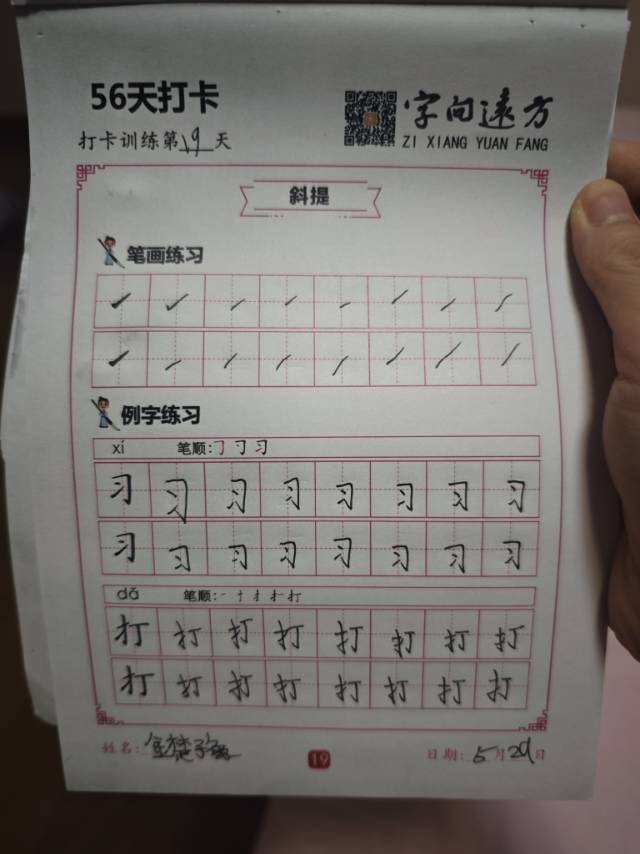 56天打卡
字向远方
打卡训练第19天
ZI XIANG YUAN FANG
斜提
笔画练习
例字练习
xí 笔顺:㇆ 习
习 习 习 习 习 习 习 习
习 习 习 习 习 习 习 习
dǎ 笔顺:一 十 扌 打
打 打 打 打 打 打 打 打
打 打 打 打 打 打 打 打
姓名:
19
日期:5月29日